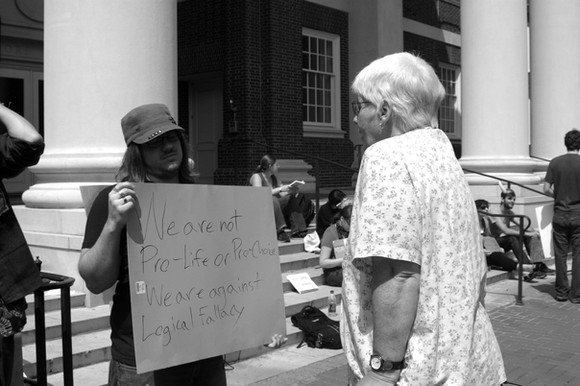 We are not
Pro-Life or Pro-Choice
We are against
Logical Fallacy